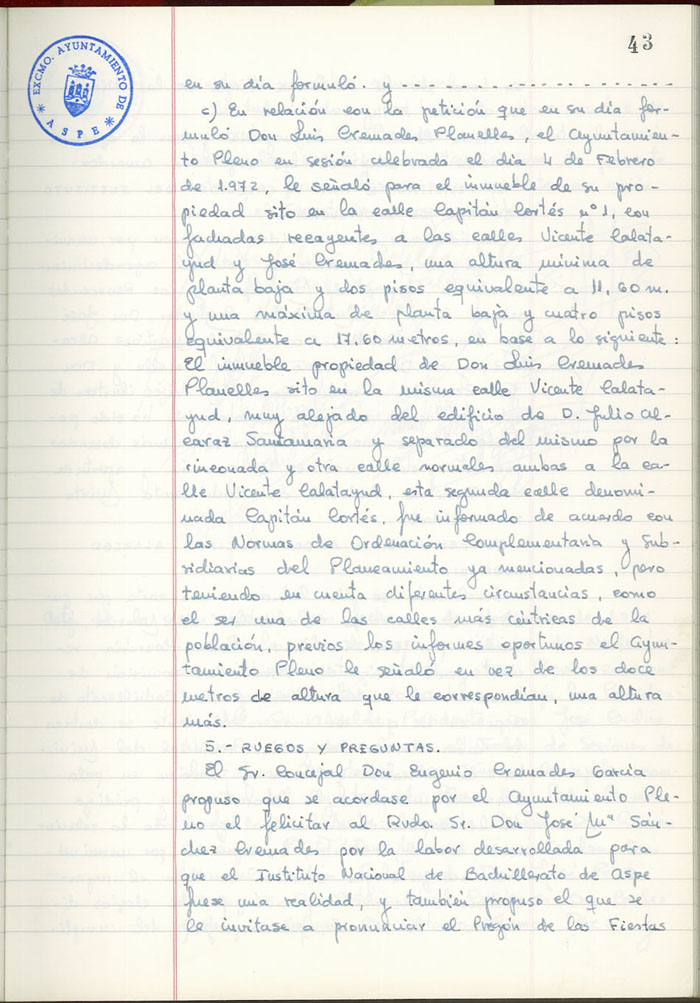 43
EXCMO. AYUNTAMIENTO DE
* ASPE *
en su día formuló. y - - - - - - - - - - - - - - -
c) En relación con la petición que en su día for-
muló Don Luis Cremades Planelles, el Ayuntamien-
to Pleno en sesión celebrada el día 4 de Febrero
de 1.972, le señaló para el inmueble de su pro-
piedad sito en la calle Capitán Cortés nº 1, con
fachadas recayentes a las calles Vicente Calata-
yud y José Cremades, una altura mínima de
planta baja y dos pisos equivalente a 11,60 m.
y una máxima de planta baja y cuatro pisos
equivalente a 17.60 metros, en base a lo siguiente:
El inmueble propiedad de Don Luis Cremades
Planelles sito en la misma calle Vicente Calata-
yud, muy alejado del edificio de D. Julio Al-
caraz Santamaría y separado del mismo por la
rinconada y otra calle normales ambas a la ca-
lle Vicente Calatayud, esta segunda calle denomi-
nada Capitán Cortés, fue informado de acuerdo con
las Normas de Ordenación Complementaria y Sub-
sidiarias del Planeamiento ya mencionadas, pero
teniendo en cuenta diferentes circunstancias, como
el ser una de las calles más céntricas de la
población, previos los informes oportunos el Ayun-
tamiento Pleno le señaló en vez de los doce
metros de altura que le correspondían, una altura
más.
5.- RUEGOS Y PREGUNTAS.
El Sr. Concejal Don Eugenio Cremades García
propuso que se acordase por el Ayuntamiento Ple-
no el felicitar al Rvdo. Sr. Don José Mª Sán-
chez Cremades por la labor desarrollada para
que el Instituto Nacional de Bachillerato de Aspe
fuese una realidad, y también propuso el que se
le invitase a pronunciar el Pregón de las Fiestas